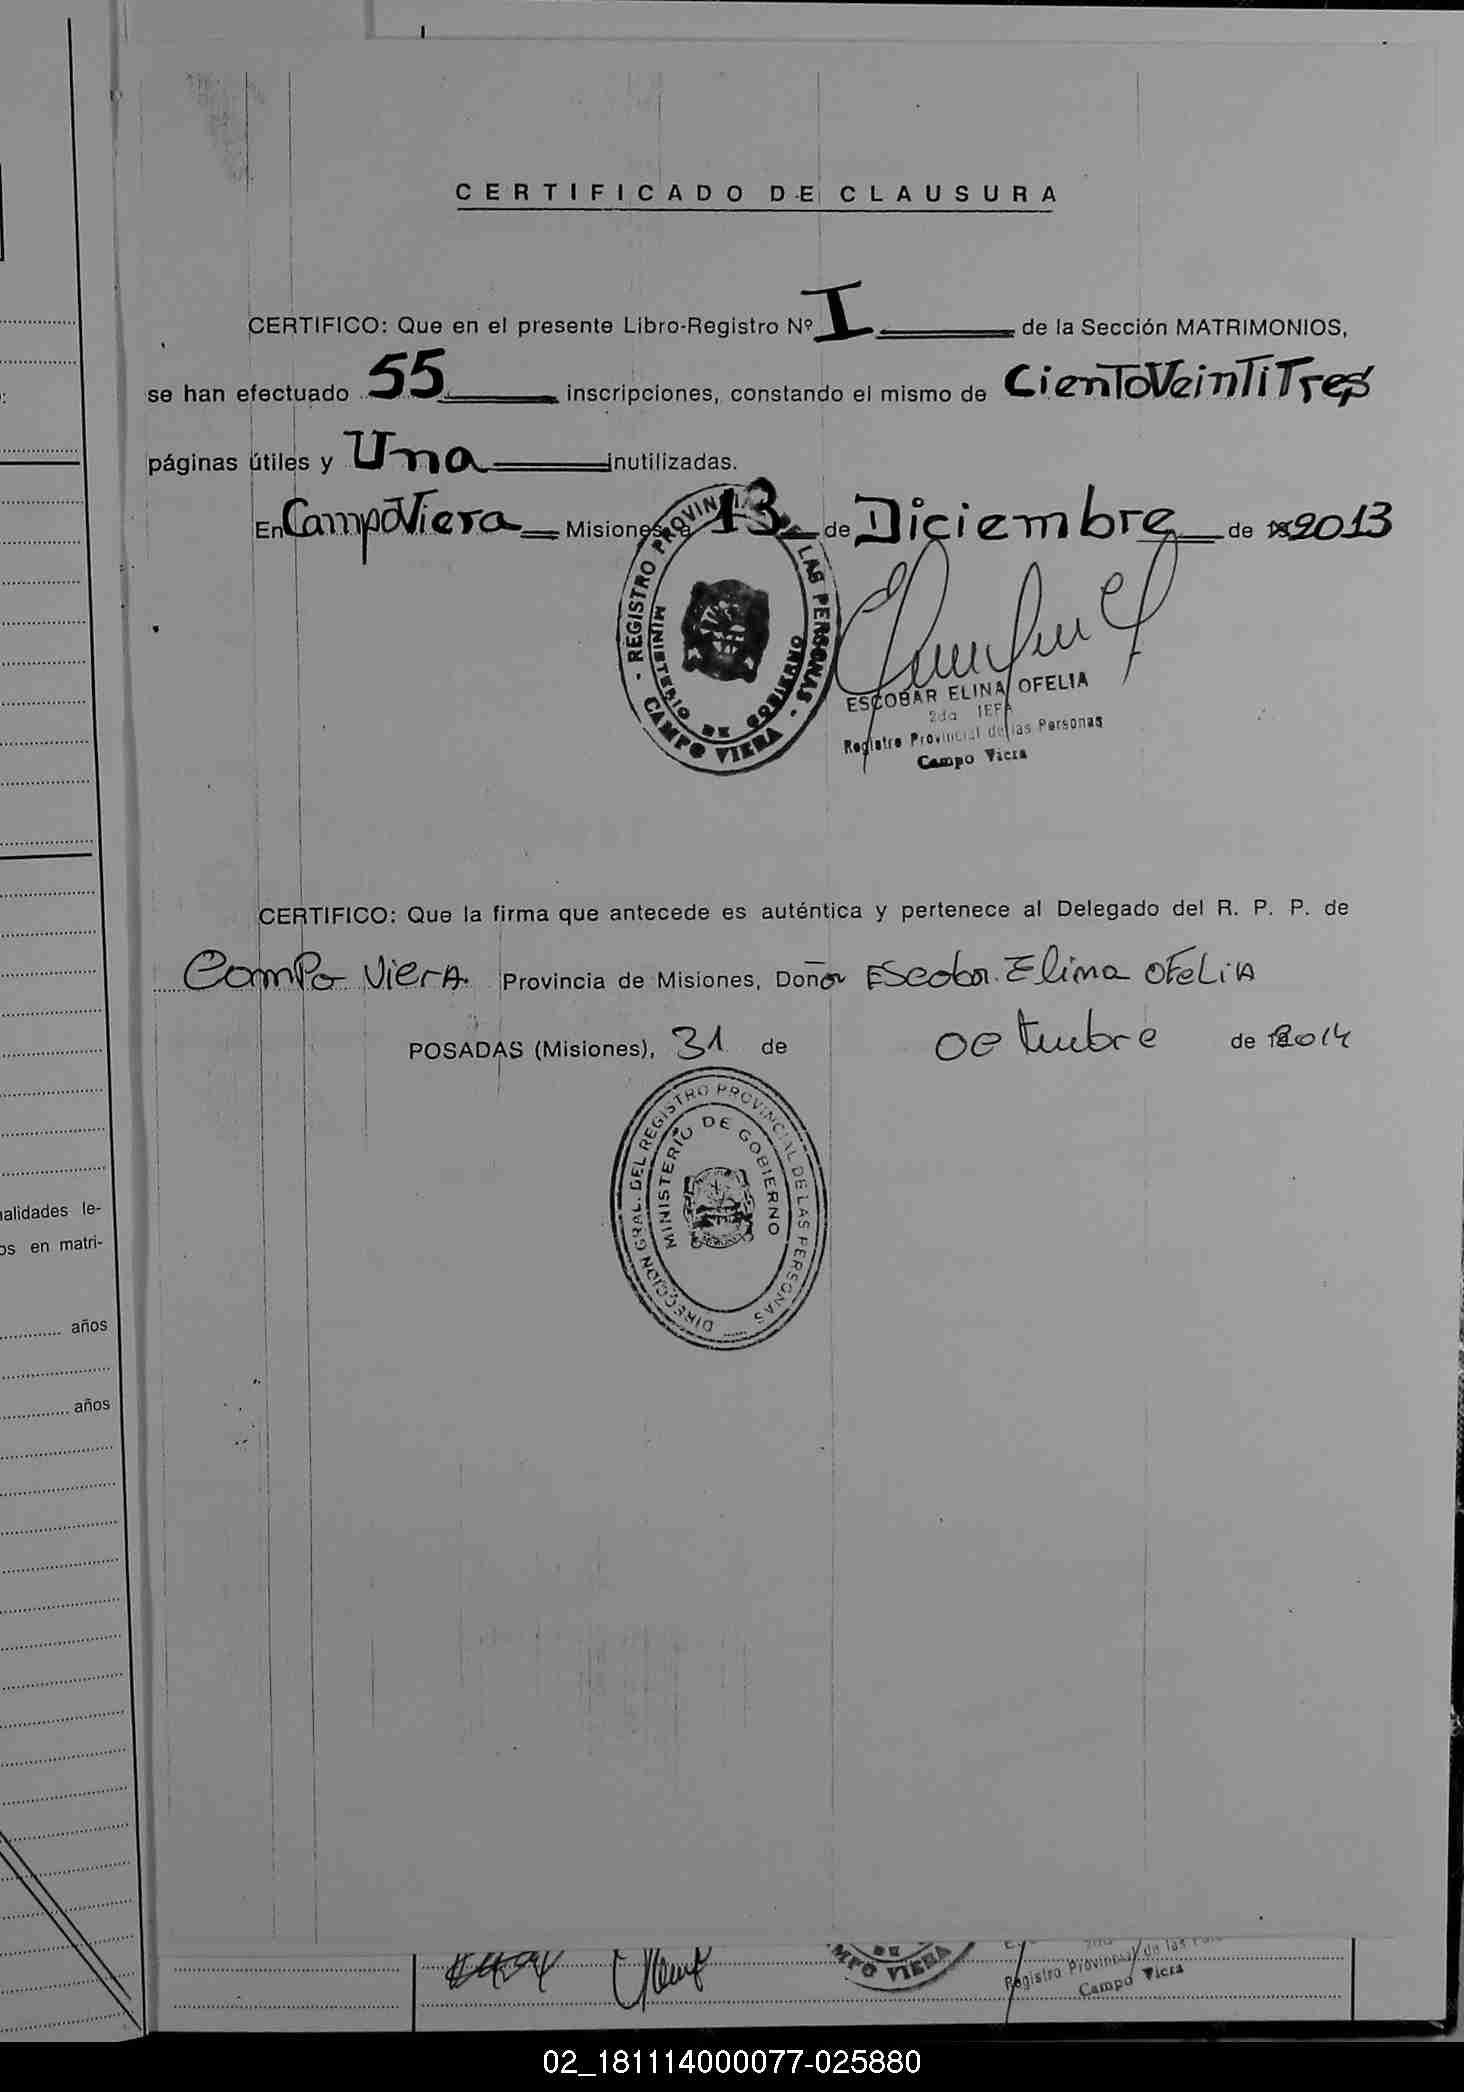 CERTIFICADO DE CLAUSURA
CERTIFICO: Que en el presente Libro-Registro Nº I de la Sección MATRIMONIOS,
se han efectuado 55 inscripciones, constando el mismo de CientoVeintiTres
páginas útiles y Una inutilizadas.
En Campo Viera Misiones, a 13 de Diciembre de 2013
- REGISTRO PROVINCIAL DE LAS PERSONAS -
MINISTERIO DE GOBIERNO
CAMPO VIERA
ESCOBAR ELINA OFELIA
2da JEFA
Registro Provincial de las Personas
Campo Viera
CERTIFICO: Que la firma que antecede es auténtica y pertenece al Delegado del R. P. P. de
Campo Viera Provincia de Misiones, Doña Escobar Elina Ofelia
POSADAS (Misiones), 31 de octubre de 2014
DIRECCION GRAL. DEL REGISTRO PROVINCIAL DE LAS PERSONAS
MINISTERIO DE GOBIERNO
alidades le-
os en matri-
años
años
DE
MPO VIERA
2da
Registro Provincial de las
Campo Viera
02_181114000077-025880